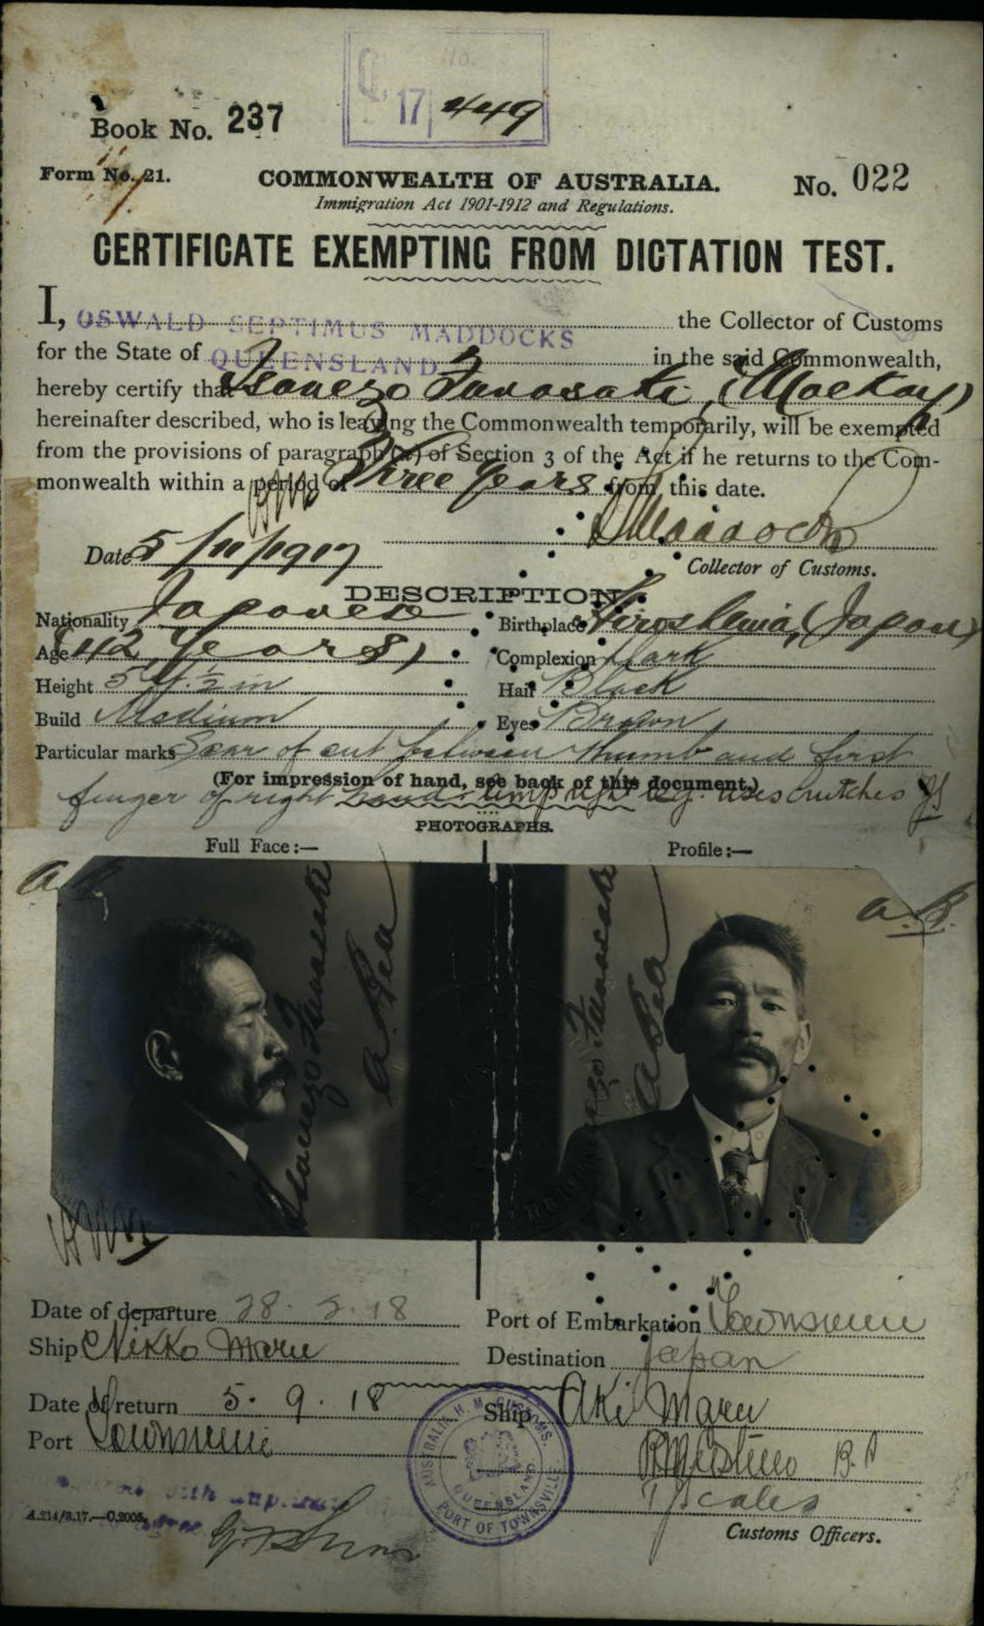 No.
Q. 17/449
Book No. 237
Form No. 21.
COMMONWEALTH OF AUSTRALIA.
No. 022
Immigration Act 1901-1912 and Regulations.
CERTIFICATE EXEMPTING FROM DICTATION TEST.
I, OSWALD SEPTIMUS MADDOCKS the Collector of Customs
for the State of QUEENSLAND in the said Commonwealth,
hereby certify that Isanezo Funasaki, (Mackay)
hereinafter described, who is leaving the Commonwealth temporarily, will be exempted
from the provisions of paragraph (a) of Section 3 of the Act if he returns to the Com-
monwealth within a period of Three years from this date.
Date 5/11/1917
Collector of Customs.
DESCRIPTION.
Nationality Japanese
Birthplace Hiroshima, (Japan)
Age (42 Years)
Complexion Dark
Height 5 ft. ½ in
Hair Black
Build Medium
Eyes Brown
Particular marks Scar of cut between thumb and first
(For impression of hand, see back of this document.)
finger of right hand. Limp right leg. uses crutches
PHOTOGRAPHS.
Full Face:—
Profile:—
Isanezo Funasaki
Funasaki
Date of departure 28. 2. 18
Port of Embarkation Townsville
Ship Nikko Maru
Destination Japan
Date of return 5. 9. 18
Ship Aki Maru
Port Townsville
T Scales
Customs Officers.
AUSTRALIA H. M. CUSTOMS.
QUEENSLAND
PORT OF TOWNSVILLE
A.214/8.17.—C.2008.